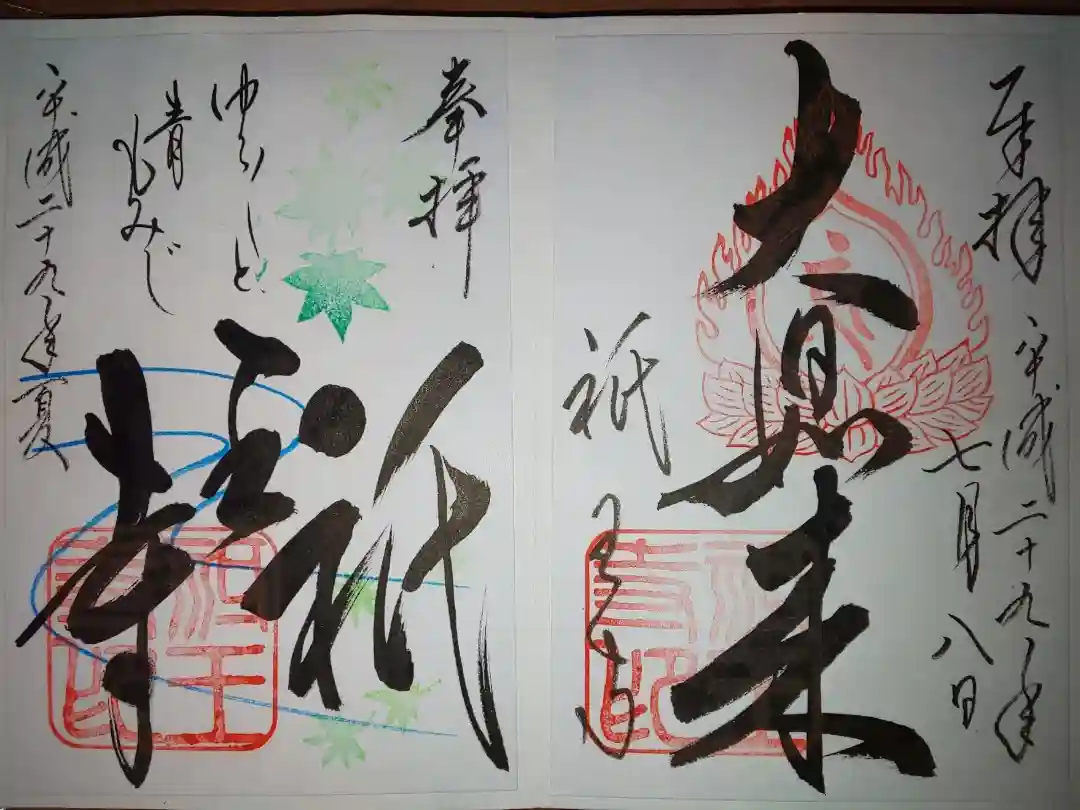 奉拝
平成二十九年
七月八日
大日如来
祇王寺
祇王寺印
奉拝
ゆらりと
青
もみじ
平成二十九年夏
祇王寺
祇王寺印